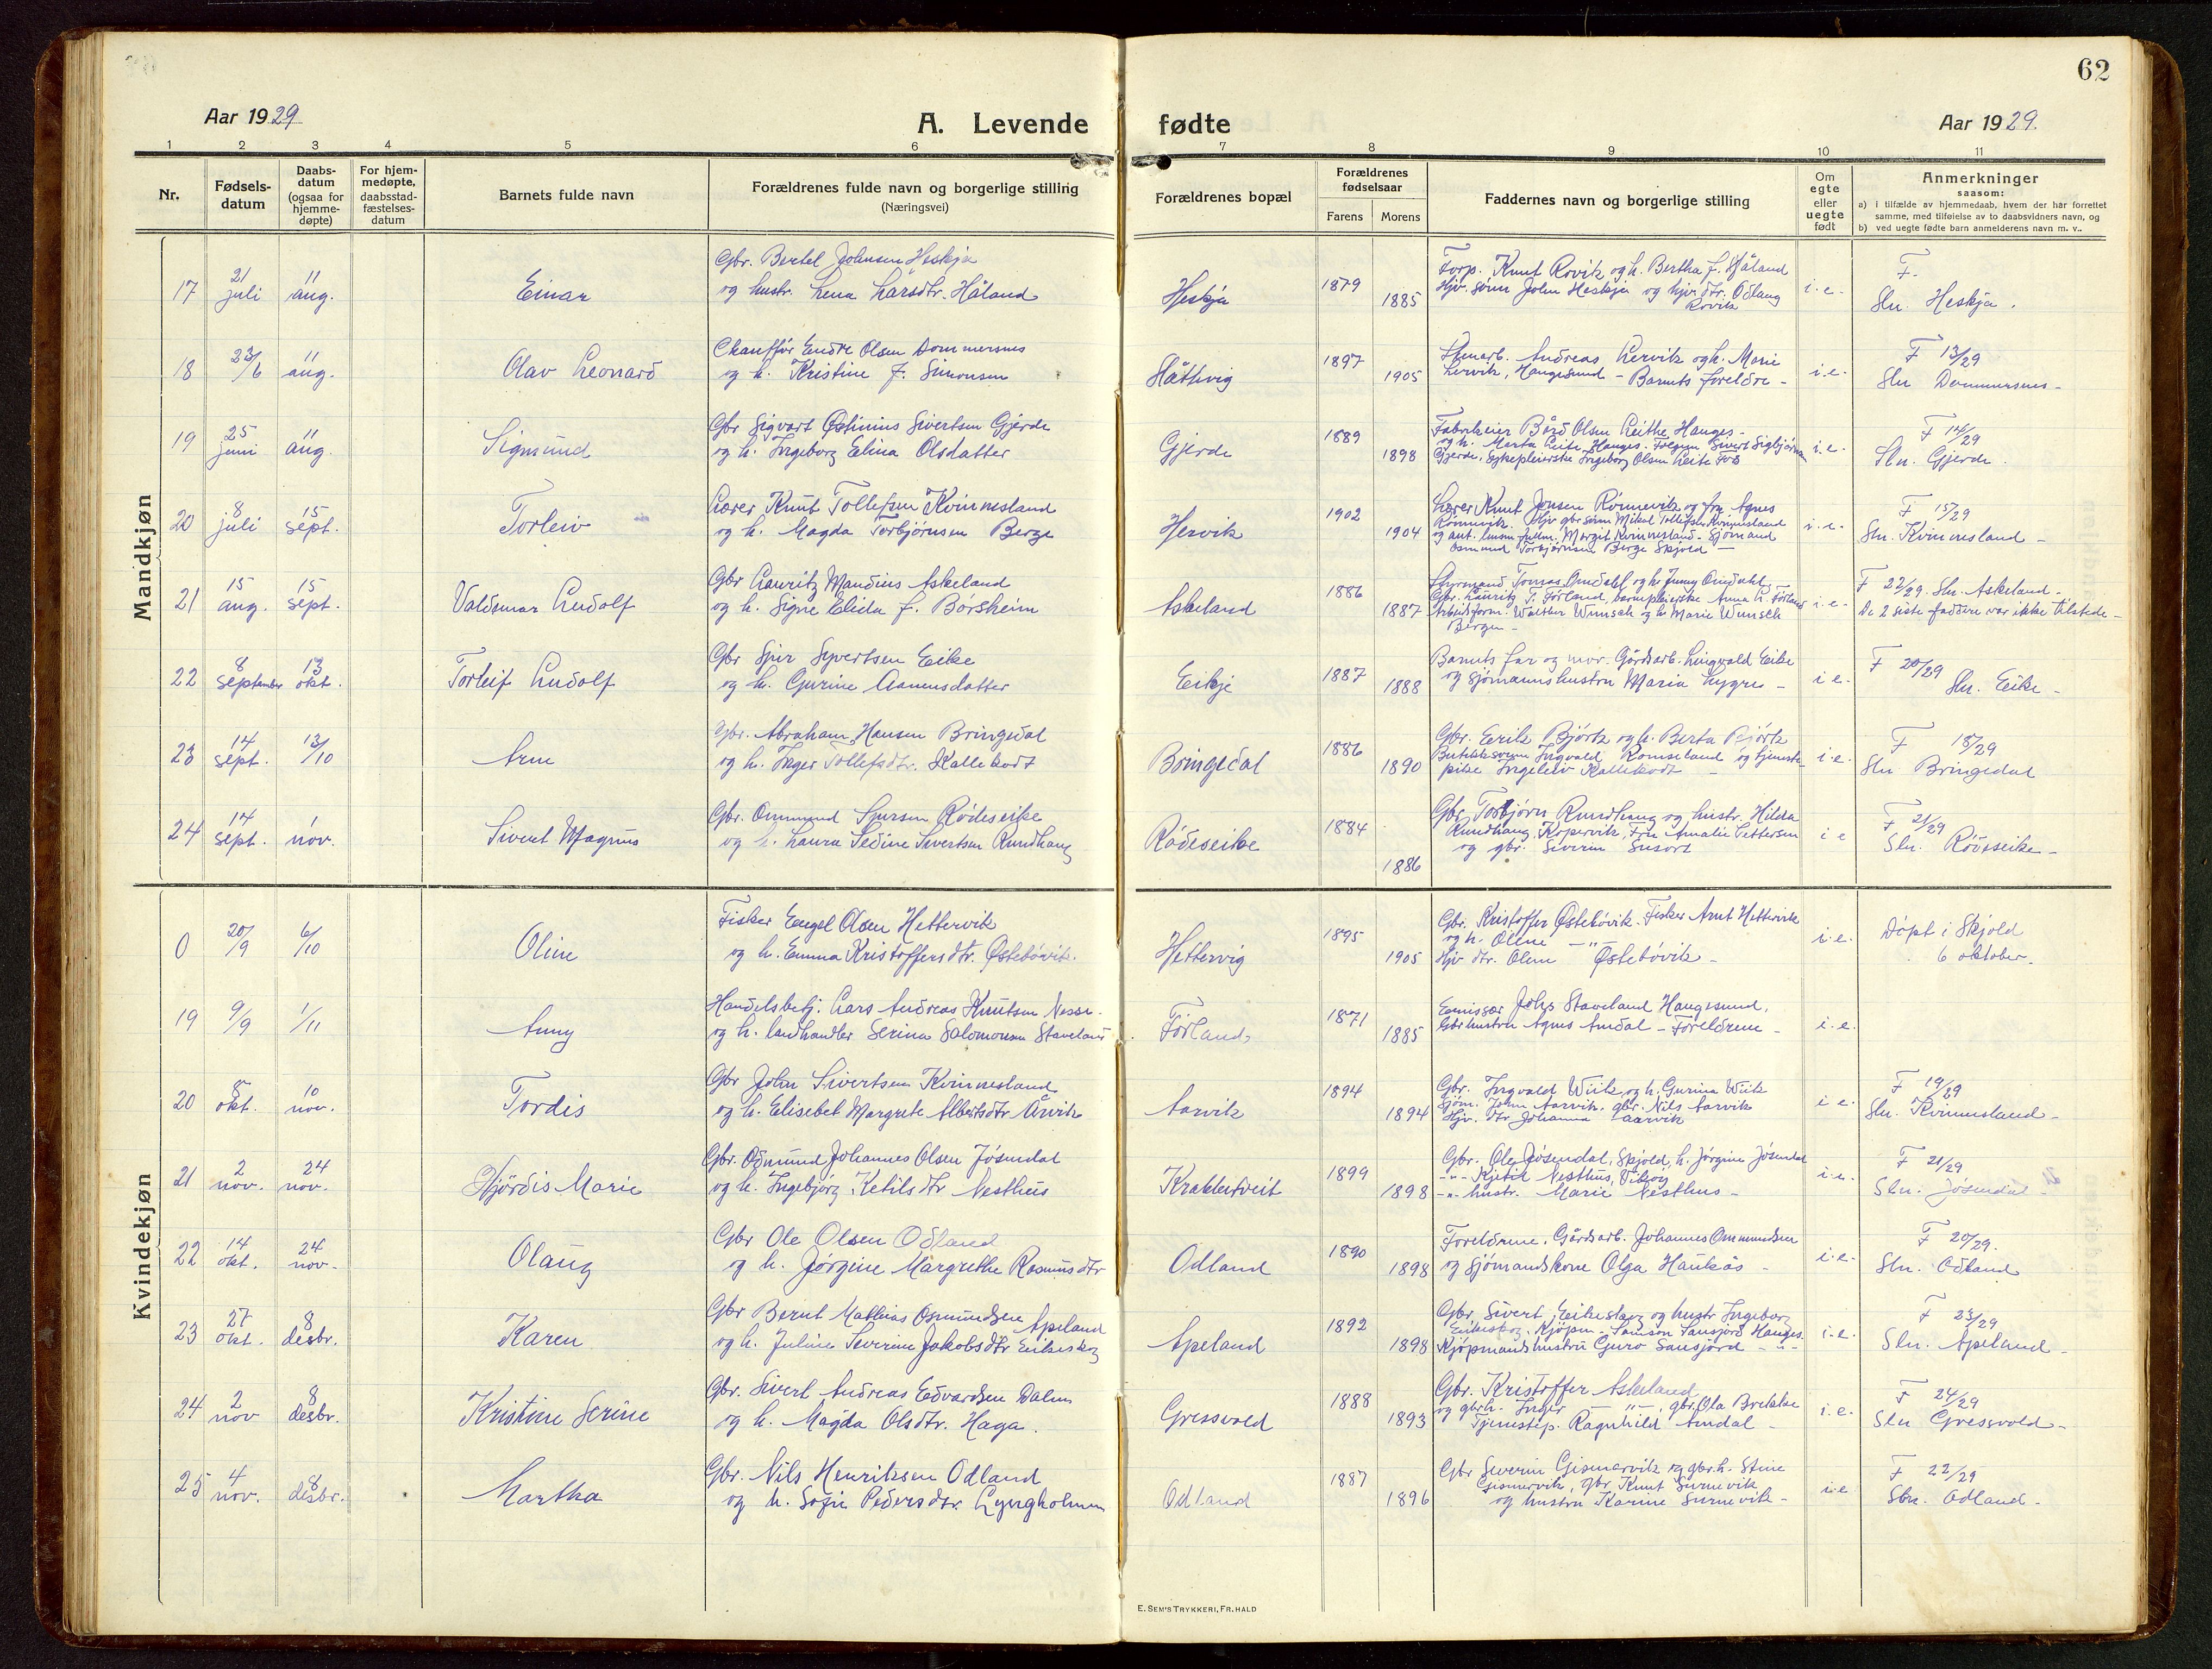 62
Aar 1929
A. Levende fødte
Aar 1929.
1 2 3 4 5 6 7 8 9 10 11
Nr.
Fødsels-
datum
Daabs-
datum
(ogsaa for
hjemme-
døpte)
For hjem-
medøpte,
daabsstad-
fæstelses-
datum
Barnets fulde navn
Forældrenes fulde navn og borgerlige stilling
(Næringsvei)
Forældrenes bopæl
Forældrenes
fødselsaar
Farens Morens
Faddernes navn og borgerlige stilling
Om
egte
eller
uegte
født
Anmerkninger
saasom:
a) i tilfælde av hjemmedaab, hvem der har forrettet
samme, med tilføielse av to daabsvidners navn, og
b) ved uegte fødte barn anmelderens navn m. v..
Mandkjøn
17 21 juli 11 aug. Einar
Gbr. Bertel Johnsen Heskja
og hustr. Lena Larsdtr. Håland
Heskja 1879 1885
Forp. Knut Rovik og h. Bertha f. Håland
Hjv. sønn John Heskja og hjv. dtr. Odlaug
Rovik
i.e. F. Sln. Heskja.
18 23/6 11 aug. Olav Leonard
Chauffør Endre Olsen Dommersnes
og h. Kristine f. Simonsen
Håthvig 1897 1905
Stenarb. Andreas Lervik og h. Marie
Lervik, Haugesund - Barnets foreldre -
i.e. F 13/29
Sln Dommersnes -
19 25 juni 11 aug. Sigmund
Gbr Sigvart Østinius Sivertsen Gjerde
og h. Ingeborg Elina Olsdatter
Gjerde 1889 1898
Fabrikeier Bård Olsen Leithe Hauges -
og h. Marta Leite Hauges. Sivert Sigbjørnsen
Gjerde. Sykepleierske Ingeborg Olsen Leite
i.e. F 14/29
Sln. Gjerde.
20 8 juli 15 sept. Torleiv
Lærer Knut Tollefsen Kvinnesland
og h. Magda Torbjørnsen Berge
Hervik 1902 1904
Lærer Knut Jonsen Rönnevik og fru Agnes
Rönnevik. Hjv gbr sønn Mikal Tollefsen Kvinnesland
og ant. Margit Kvinnesland - Sjömand
Osmund Torbjørnsen Berge Skjold -
i.e. F 15/29
Sln. Kvinnesland -
21 15 aug. 15 sept. Valdemar Ludolf
Gbr Lauritz Mandius Askeland
og h. Signe Elida f. Börsheim
Askeland 1886 1887
Styrmand Tomas Amdahl og h. Jenny Amdahl,
Gbr. Lauritz T. Förland, barnepleierske Anna L. Förland
Arbeidsform. Walther Wunsch og h Marie Wunsch
Bergen -
i.e. F 22/29. Sln. Askeland -
De 2 siste faddere var ikke tilstede -
22 8 september 13 okt. Torleif Ludolf
Gbr Sjur Syvertsen Eike
og h. Gurine Aanensdatter
Eikje 1887 1888
Barnets far og mor. Gårdsarb. Lingvald Eike
og sjømannshustru Maria Lygre -
i e. F 20/29 Sln. Eike -
23 14 sept. 13/10 Arne
Gbr. Abraham Hansen Bringedal
og h. Inger Tollefsdtr. Kallekodt
Bringedal 1886 1890
Gbr. Eerik Bjørk og h. Berta Bjørk
Butikksvenn Ingvald Romseland og tjeneste-
pike Ingeleiv Kallekodt -
i.e. F 18/29
Sln Bringedal
24 14 sept. 1 nov. Sivert Magnus
Gbr. Ommund Sjursen Rødeseike
og h. Laura Sedine Sivertsen Rundhaug
Rødeseike 1884 1886
Gbr Torbjørn Rundhaug og hustr. Hilda
Rundhaug Kopervik, Fru Amalie Pettersen
og gbr. Severin Susort
i e F 21/29
Sln. Rødeseike -
Kvindekjøn
0 20/9 6/10 Oline
Fisker Engel Olsen Hettervik
og h. Emma Kristoffersdtr. Østebövik.
Hettervig 1895 1905
Gbr. Kristoffer Østebövik. Fisker Arnt Hettervik
og h. Oline - " -
Hjv dtr. Olene Østebövik -
i.e. Döpt i Skjold
6 oktober.
19 9/9 1/11 Anny
Handelsbetj. Lars Andreas Knutsen Nesse -
og h. landhandler Serina Salomonsen Staveland
Förland 1871 1885
Emissær Johs Staveland Haugesund,
Gbrhustru Agnes Amdal - Foreldrene -
i.e.
20 8 okt. 10 nov. Tordis
Gbr John Sivertsen Kvinnesland
og h. Elisabet Margrete Albertsdtr Årvik
Aarvik 1894 1894
Gbr. Ingvald Wiik og h. Gurina Wiik
Sjöm. John Aarvik, gbr. Nils Aarvik
Hjv. dtr Johanna Aarvik
i e. F 19/29
Sln. Kvinnesland -
21 2 nov. 24 nov. Hjördis Marie
Gbr. Odmund Johannes Olsen Jösendal
og h. Ingebjørg Ketilsdtr Nesthus
Krakketveit 1899 1898
Gbr. Ole Jösendal, Skjold, h. Jörgine Jösendal
- " - Kjetil Nesthus,
- " - hustr. Marie Nesthus -
i.e. F 21/29
Sln. Jösendal -
22 14 okt. 24 nov. Olaug
Gbr Ole Olsen Odland
og h. Jørgine Margrethe Rasmusdtr
Odland 1890 1898
Foreldrene, Gårdsarb. Johannes Ommundsen
og sjömandskone Olga Haukås -
i.e. F 20/29.
Sln. Odland
23 27 okt. 8 desbr. Karen
Gbr Bernt Mathias Osmundsen Apeland
og h. Juline Severine Jakobsdtr Eikeskog
Apeland 1892 1898
Gbr Sivert Eikeskog og hustr Ingeborg
Eikeskog, Kjøpm. Samson Sausjord Hauges.
Kjøpmandshustru Guro Sausjord - " -
i.e. F 23/29
Sln. Apeland -
24 2 nov 8 desbr. Kristine Serine
Gbr. Sivert Andreas Edvardsen Dalen
og h. Magda Olsdtr. Haga.
Gressvold 1888 1893
Gbr. Kristoffer Askeland
og gbrh. Inger - " -, gbr. Ola Brekke
Tjenestep. Ragnhild Amdal -
i.e. F 24/29
Sln Gressvold -
25 4 nov. 8 desbr. Martha
Gbr. Nils Henriksen Odland
og h. Sofie Pedersdtr Lyngholmen
Odland 1887 1896
Gbr Severin Gismarvik og gbr.h. Stine
Gismarvik, gbr. Knut Surnevik
og hustru Karine Surnevik -
i.e F 22/29
Sln. Odland -
E. SEM'S TRYKKERI, FR. HALD